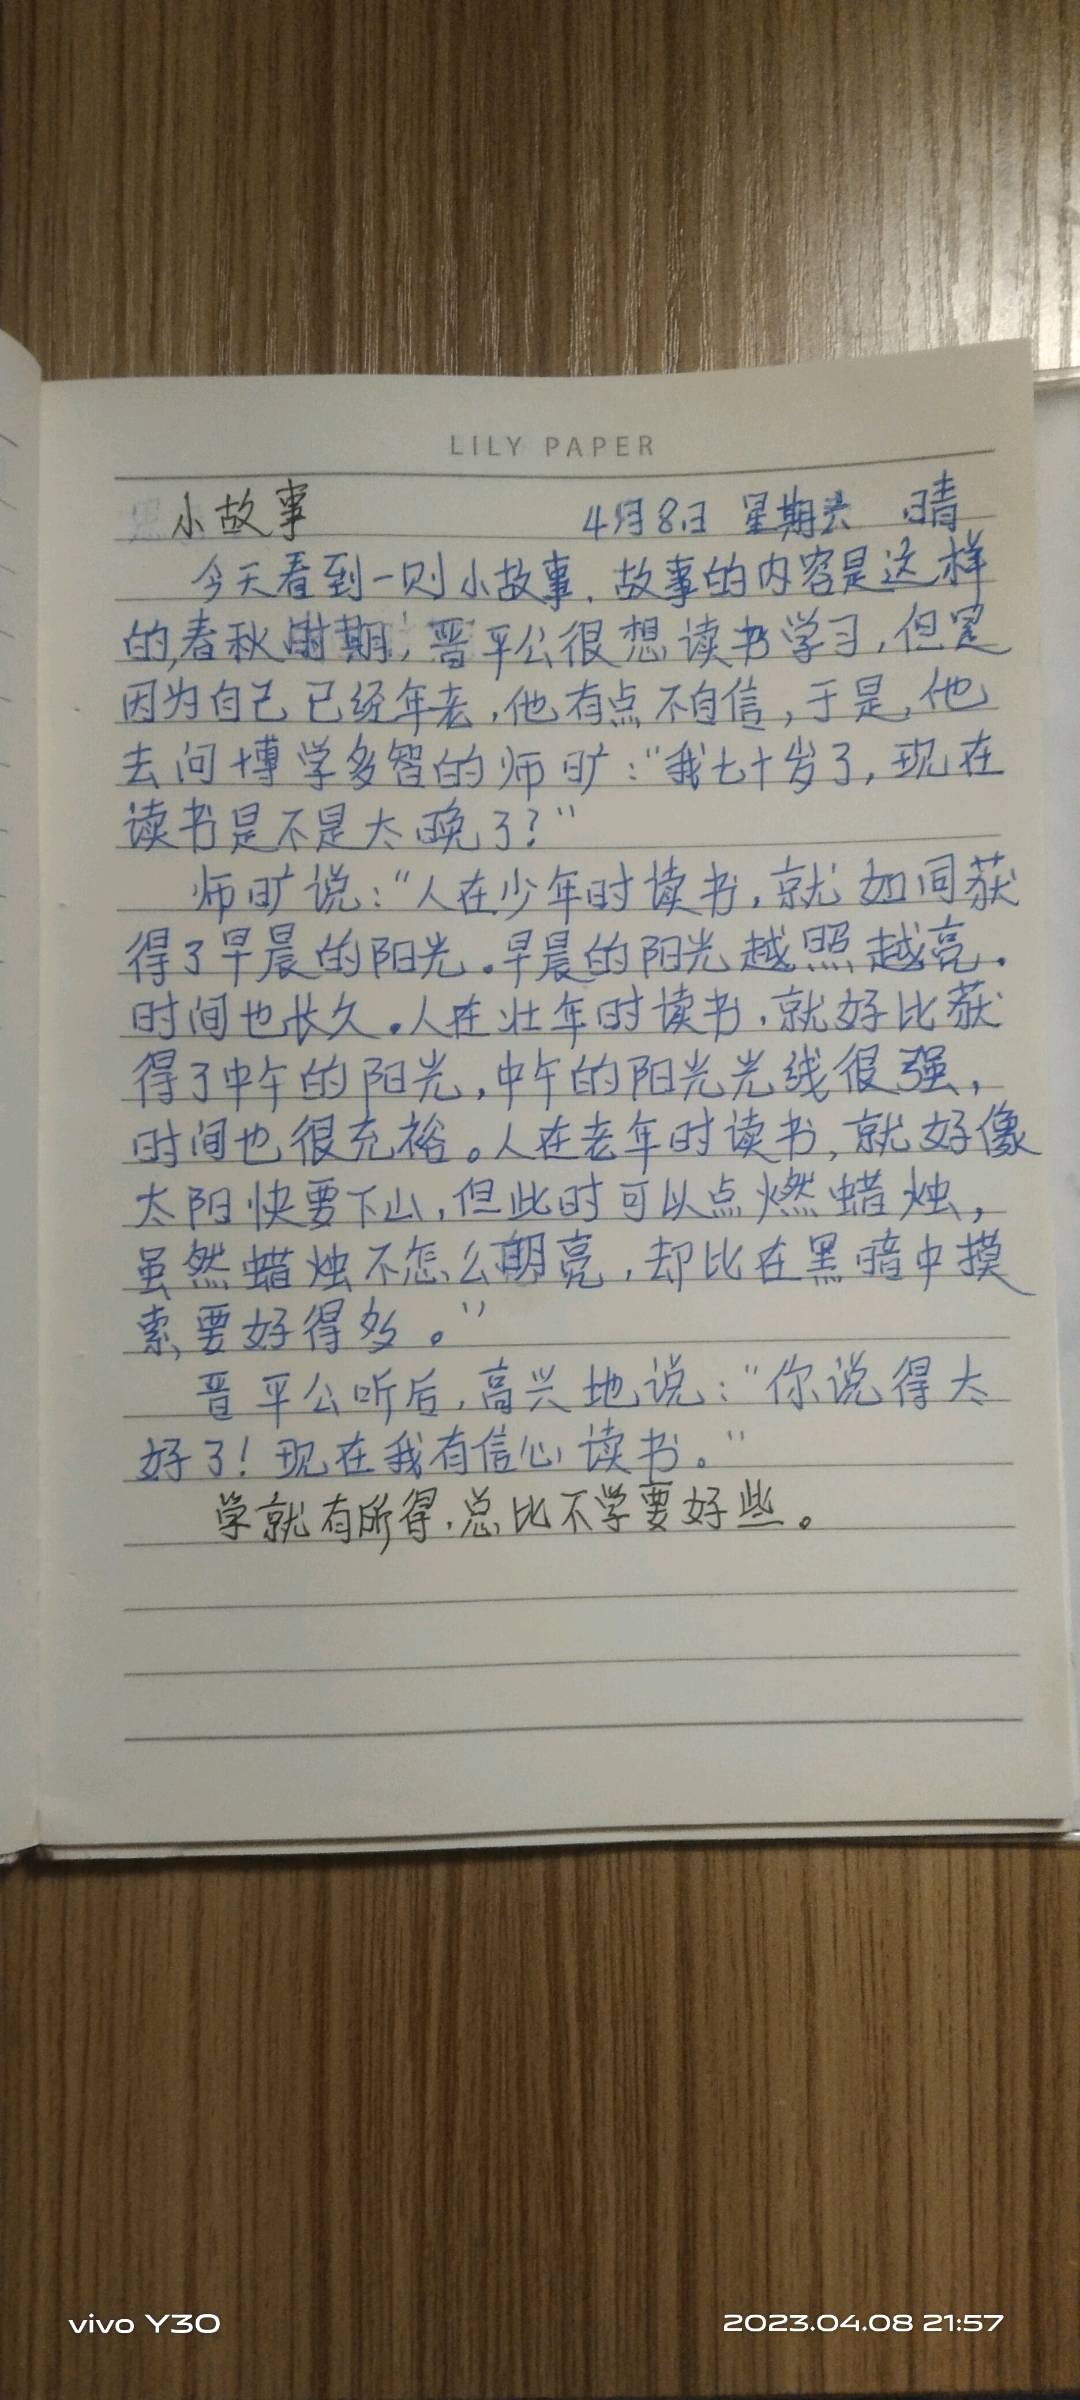 LILY PAPER
小故事 4月8日 星期六 晴
今天看到一则小故事.故事的内容是这样
的,春秋时期,晋平公很想读书学习,但是
因为自己已经年老,他有点不自信,于是,他
去问博学多智的师旷:“我七十岁了,现在
读书是不是太晚了?”
师旷说:“人在少年时读书,就如同获
得了早晨的阳光.早晨的阳光越照越亮.
时间也长久.人在壮年时读书,就好比获
得了中午的阳光,中午的阳光光线很强,
时间也很充裕。人在老年时读书,就好像
太阳快要下山,但此时可以点燃蜡烛,
虽然蜡烛不怎么明亮,却比在黑暗中摸
索,要好得多。”
晋平公听后,高兴地说:“你说得太
好了!现在我有信心读书。”
学就有所得,总比不学要好些。
vivo Y30
2023.04.08 21:57